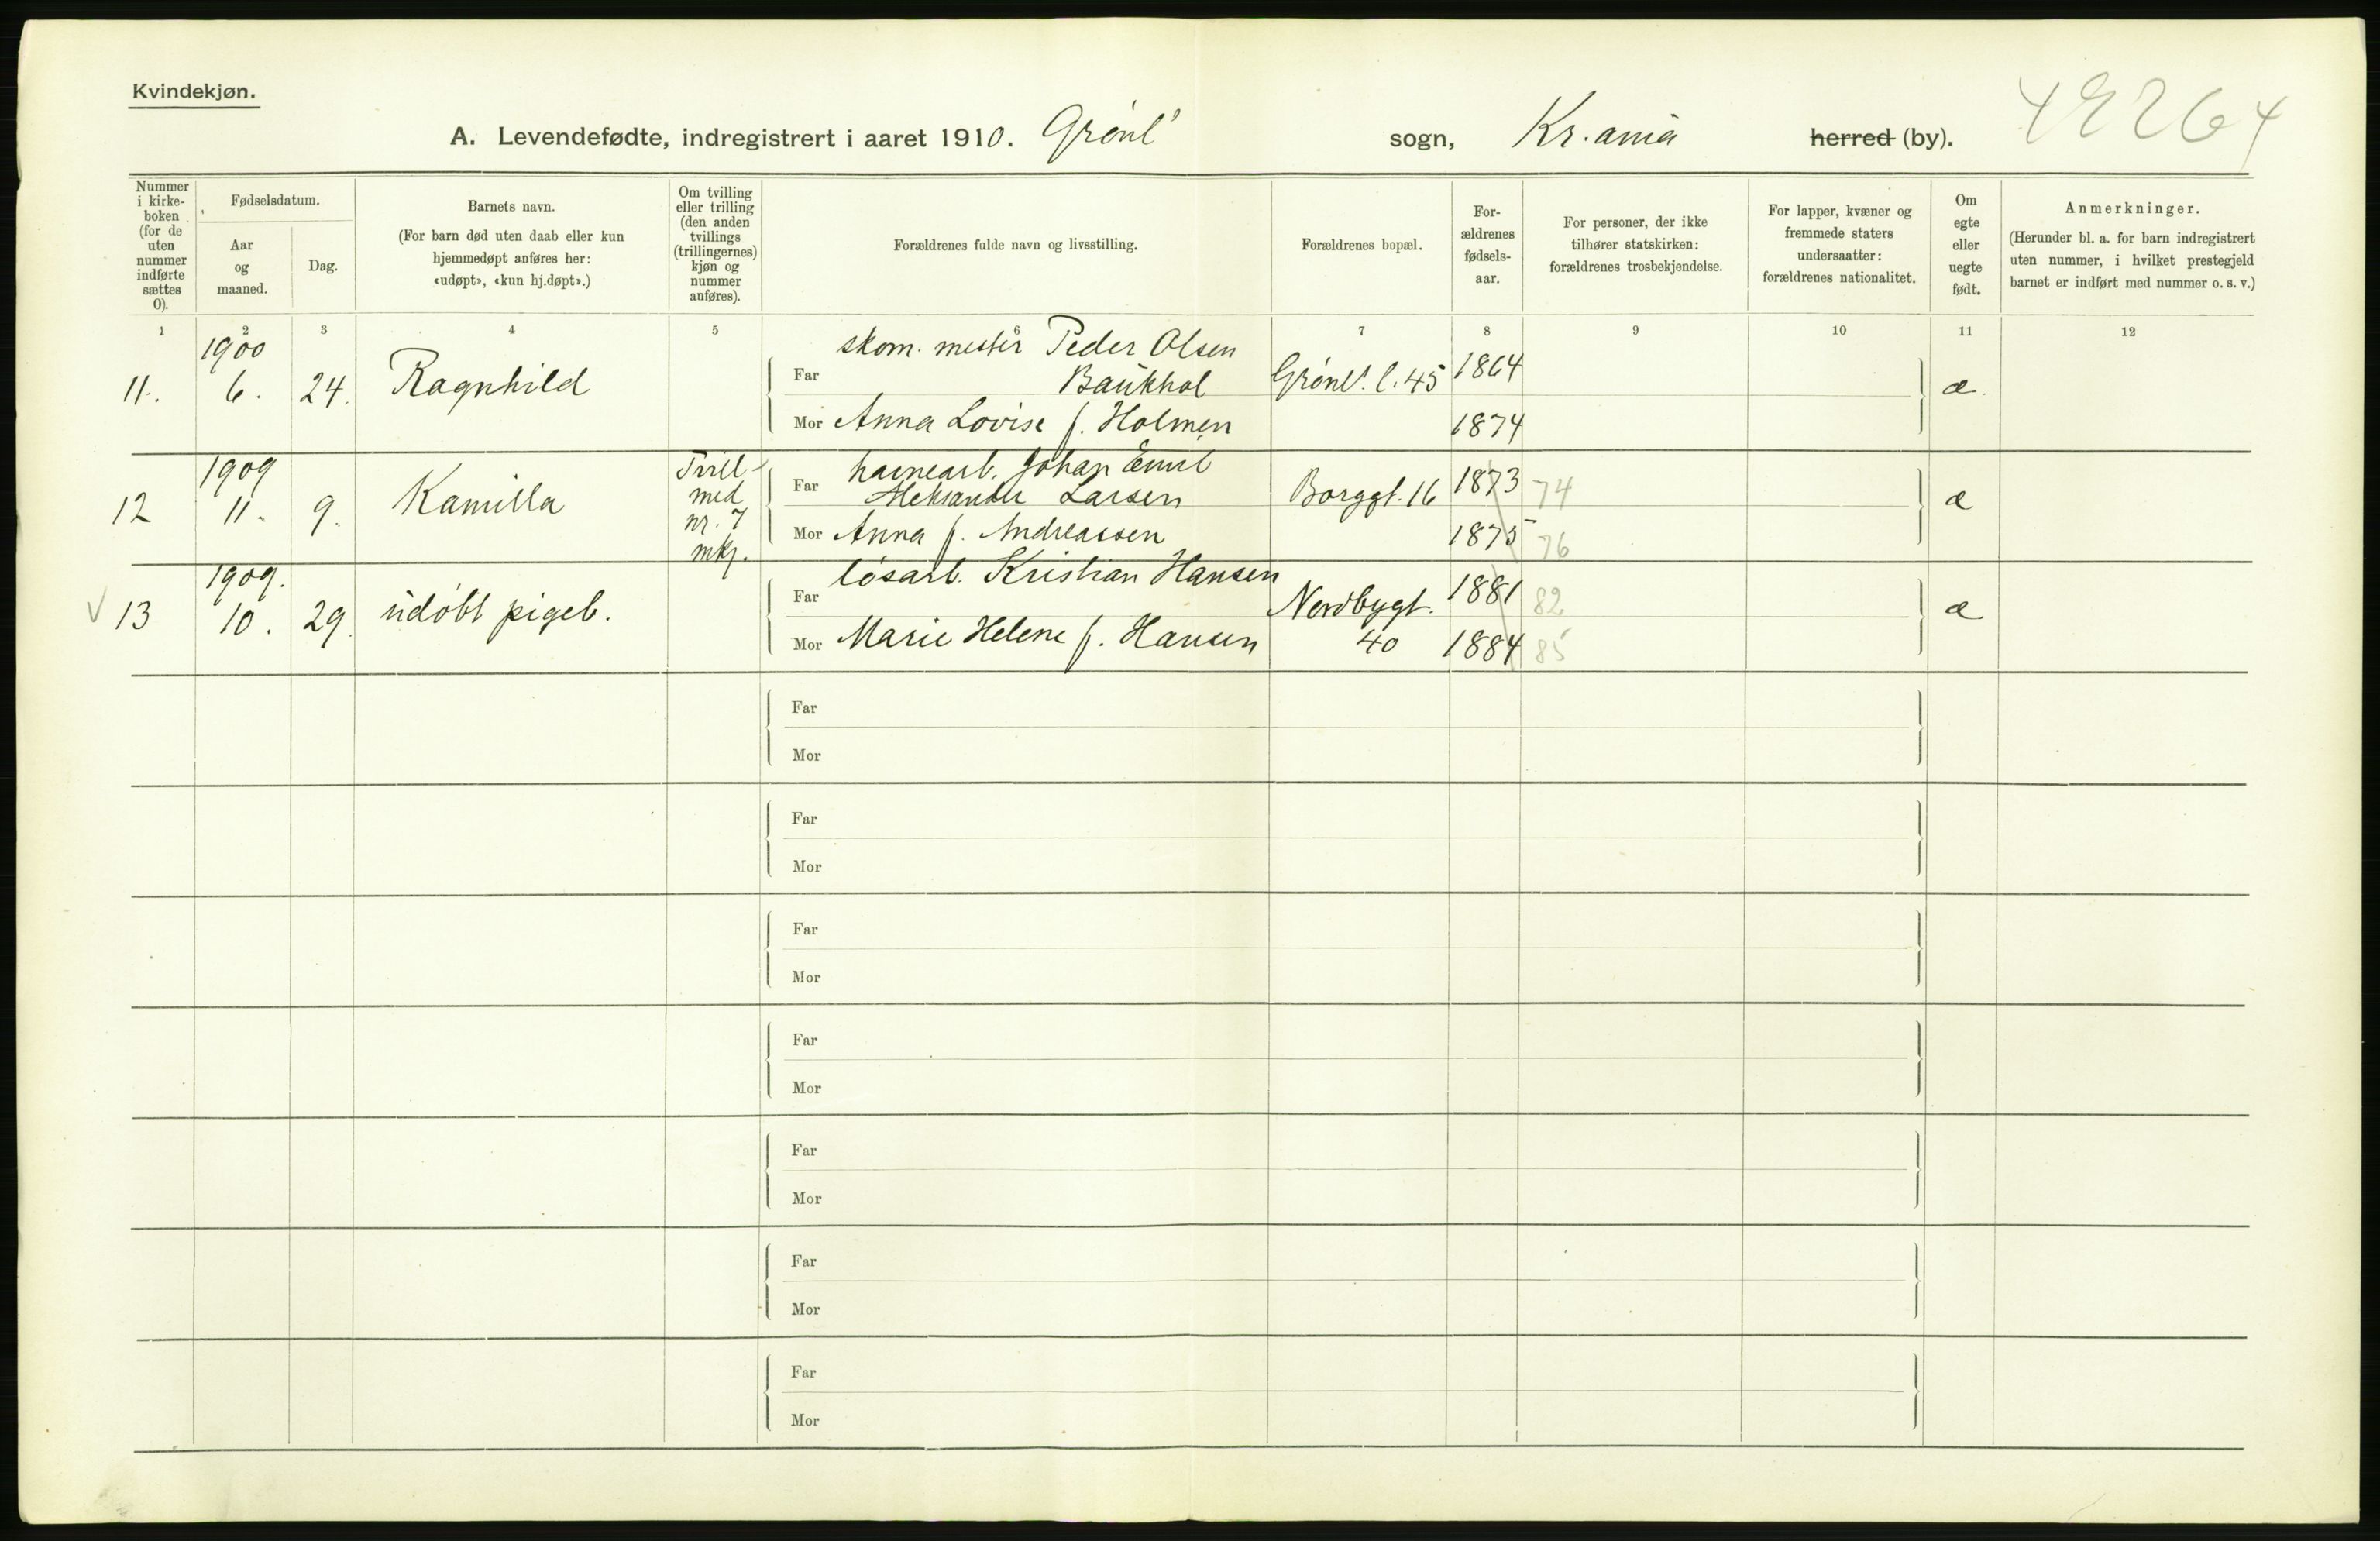 Kvindekjøn.
A. Levendefødte, indregistrert i aaret 1910. Grønl' sogn, Kr.ania herred (by).
Nummer i kirke-boken (for de uten nummer indførte sættes 0).
Fødselsdatum.
Aar og maaned.
Dag.
Barnets navn.
(For barn død uten daab eller kun
hjemmedøpt anføres her:
«udøpt», «kun hj.døpt».)
Om tvilling
eller trilling
(den anden
tvillings
(trillingernes)
kjøn og
nummer
anføres).
Forældrenes fulde navn og livsstilling.
Forældrenes bopæl.
For-
ældrenes
fødsels-
aar.
For personer, der ikke
tilhører statskirken:
forældrenes trosbekjendelse.
For lapper, kvæner og
fremmede staters
undersaatter:
forældrenes nationalitet.
Om
egte
eller
uegte
født.
Anmerkninger.
(Herunder bl. a. for barn indregistrert
uten nummer, i hvilket prestegjeld
barnet er indført med nummer o. s. v.)
1 2 3 4 5 6 7 8 9 10 11 12
1900
11. 6. 24. Ragnhild
Far skom. mester Peder Olsen
Baukhol Grønl. l. 45 1864 æ.
Mor Anna Lovise f. Holmen 1874
1909
12 11. 9. Kamilla
Tvill
med
nr. 7
mkj.
Far havnearb. Johan Emil
Aleksander Larsen Borggt. 16 1873 74 æ
Mor Anna f. Andreassen 1875 76
1909.
V 13 10. 29. udøbt pigeb.
Far løsarb. Kristian Hansen Nordbygt. 1881 82 æ
Mor Marie Helene f. Hansen 40 1884 85
Far
Mor
Far
Mor
Far
Mor
Far
Mor
Far
Mor
Far
Mor
Far
Mor